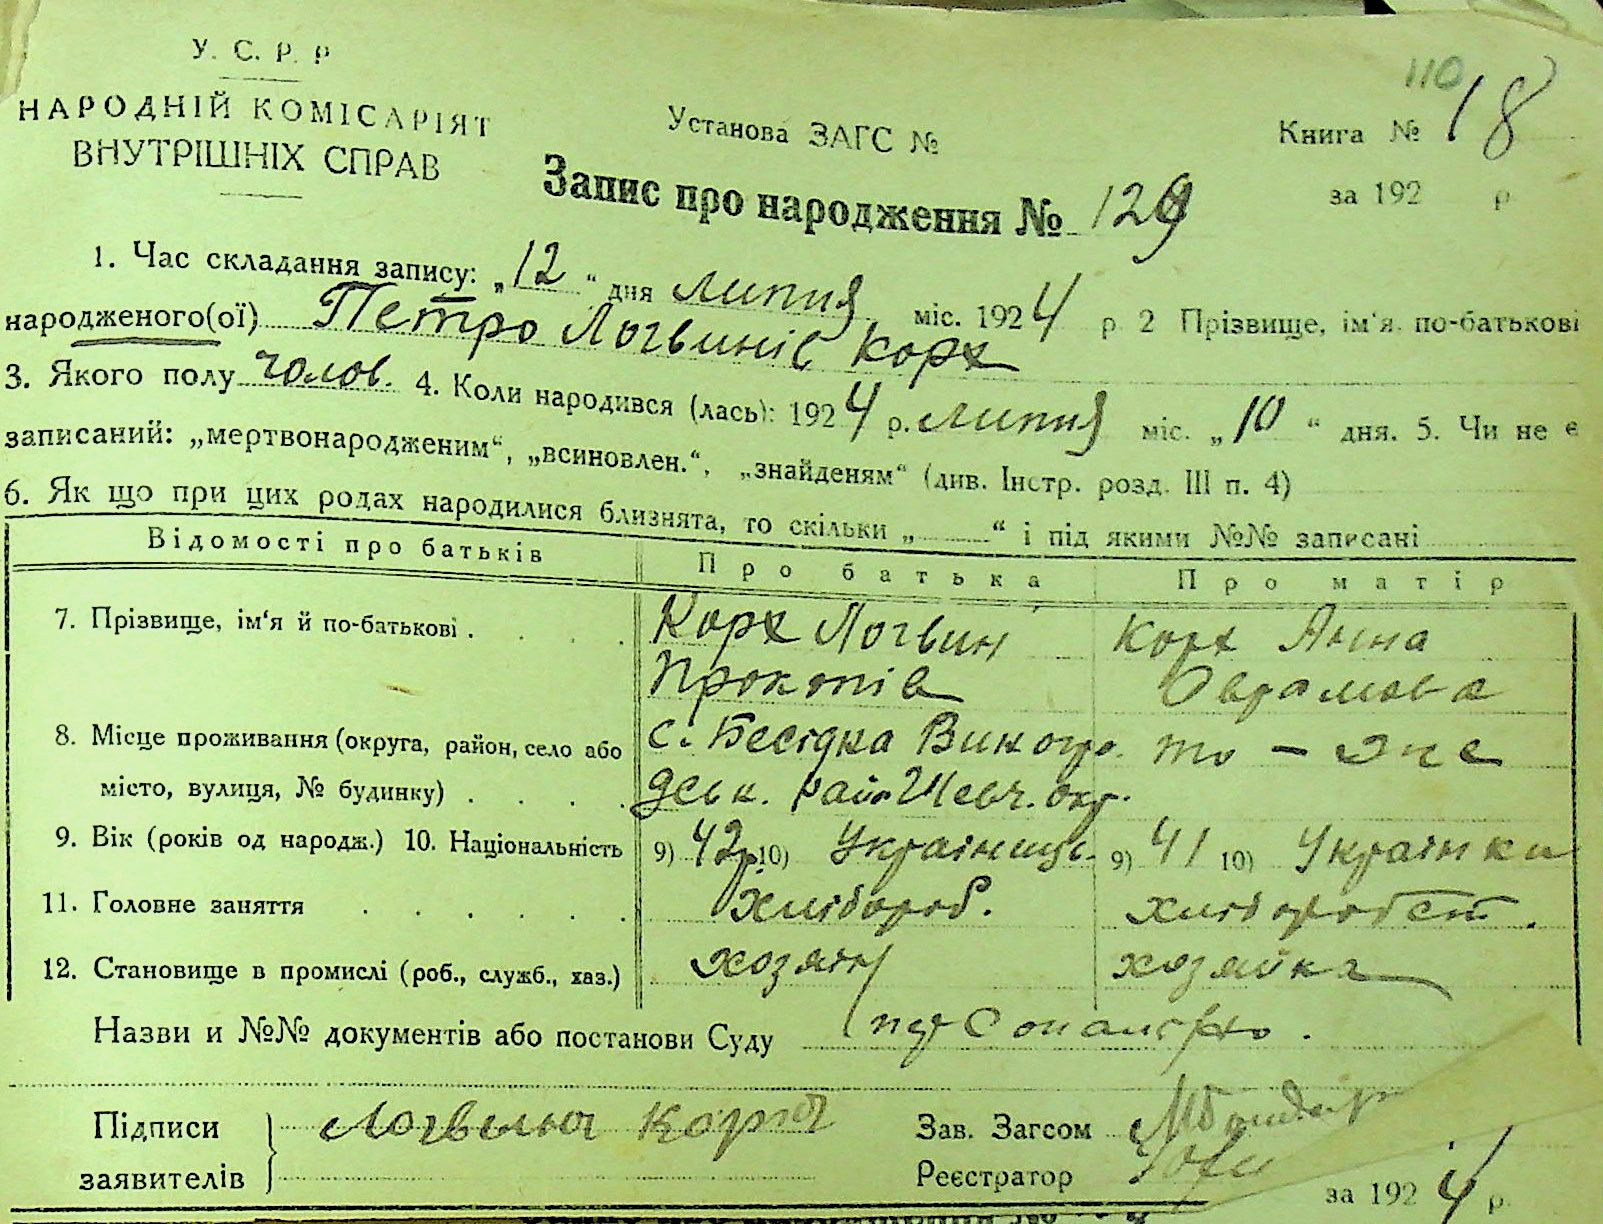 У. С. Р. Р
НАРОДНІЙ КОМІСАРІЯТ
ВНУТРІШНІХ СПРАВ
Установа ЗАГС №
110
Книга № 18
за 192 р.
Запис про народження № 129
1. Час складання запису: „12“ дня липня міс. 1924 р. 2 Прізвище, ім'я, по-батькові
народженого(ої) Петро Логвинів Корх
3. Якого полу чолов. 4. Коли народився (лась): 1924 р. липня міс. „10“ дня. 5. Чи не є
записаний: „мертвонародженим“, „всиновлен.“, „знайденям“ (див. Інстр. розд. III п. 4)
6. Як що при цих родах народилися близнята, то скільки „ “ і під якими №№ записані
Відомості про батьків Про батька Про матір
7. Прізвище, ім'я й по-батькові . . . . Корх Логвин Корх Анна
Прокопів Оврамова
8. Місце проживання (округа, район, село або с. Бесідка Виногр. то – же
місто, вулиця, № будинку) . . . . деськ. рай Шевч. окр.
9. Вік (років од народж.) 10. Національність 9) 42р 10) Українець 9) 41 10) Українка
11. Головне заняття . . . . . . Хлібороб. хлібороб
12. Становище в промислі (роб., служб., хаз.) хозяін хозяйка
Назви и №№ документів або постанови Суду
Підписи Логвин Корх Зав. Загсом
заявителів Реєстратор
за 1924 р.